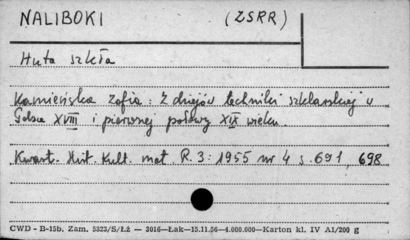 NALIBOKI (ZSRR)
Huta szkła
Kamieńska Zofia: Z dziejów techniki szklarskiej w
Polsce XVIII i pierwszej połowy XIX wieku.
Kwart. Hist. Kult. mat. R.3: 1955 nr 4 s. 691, 698
CWD - B-15b. Zam. 5323/S/Łź — 3016—Łak—15.11.56—4.000.000—Karton kl. IV A1/200 g